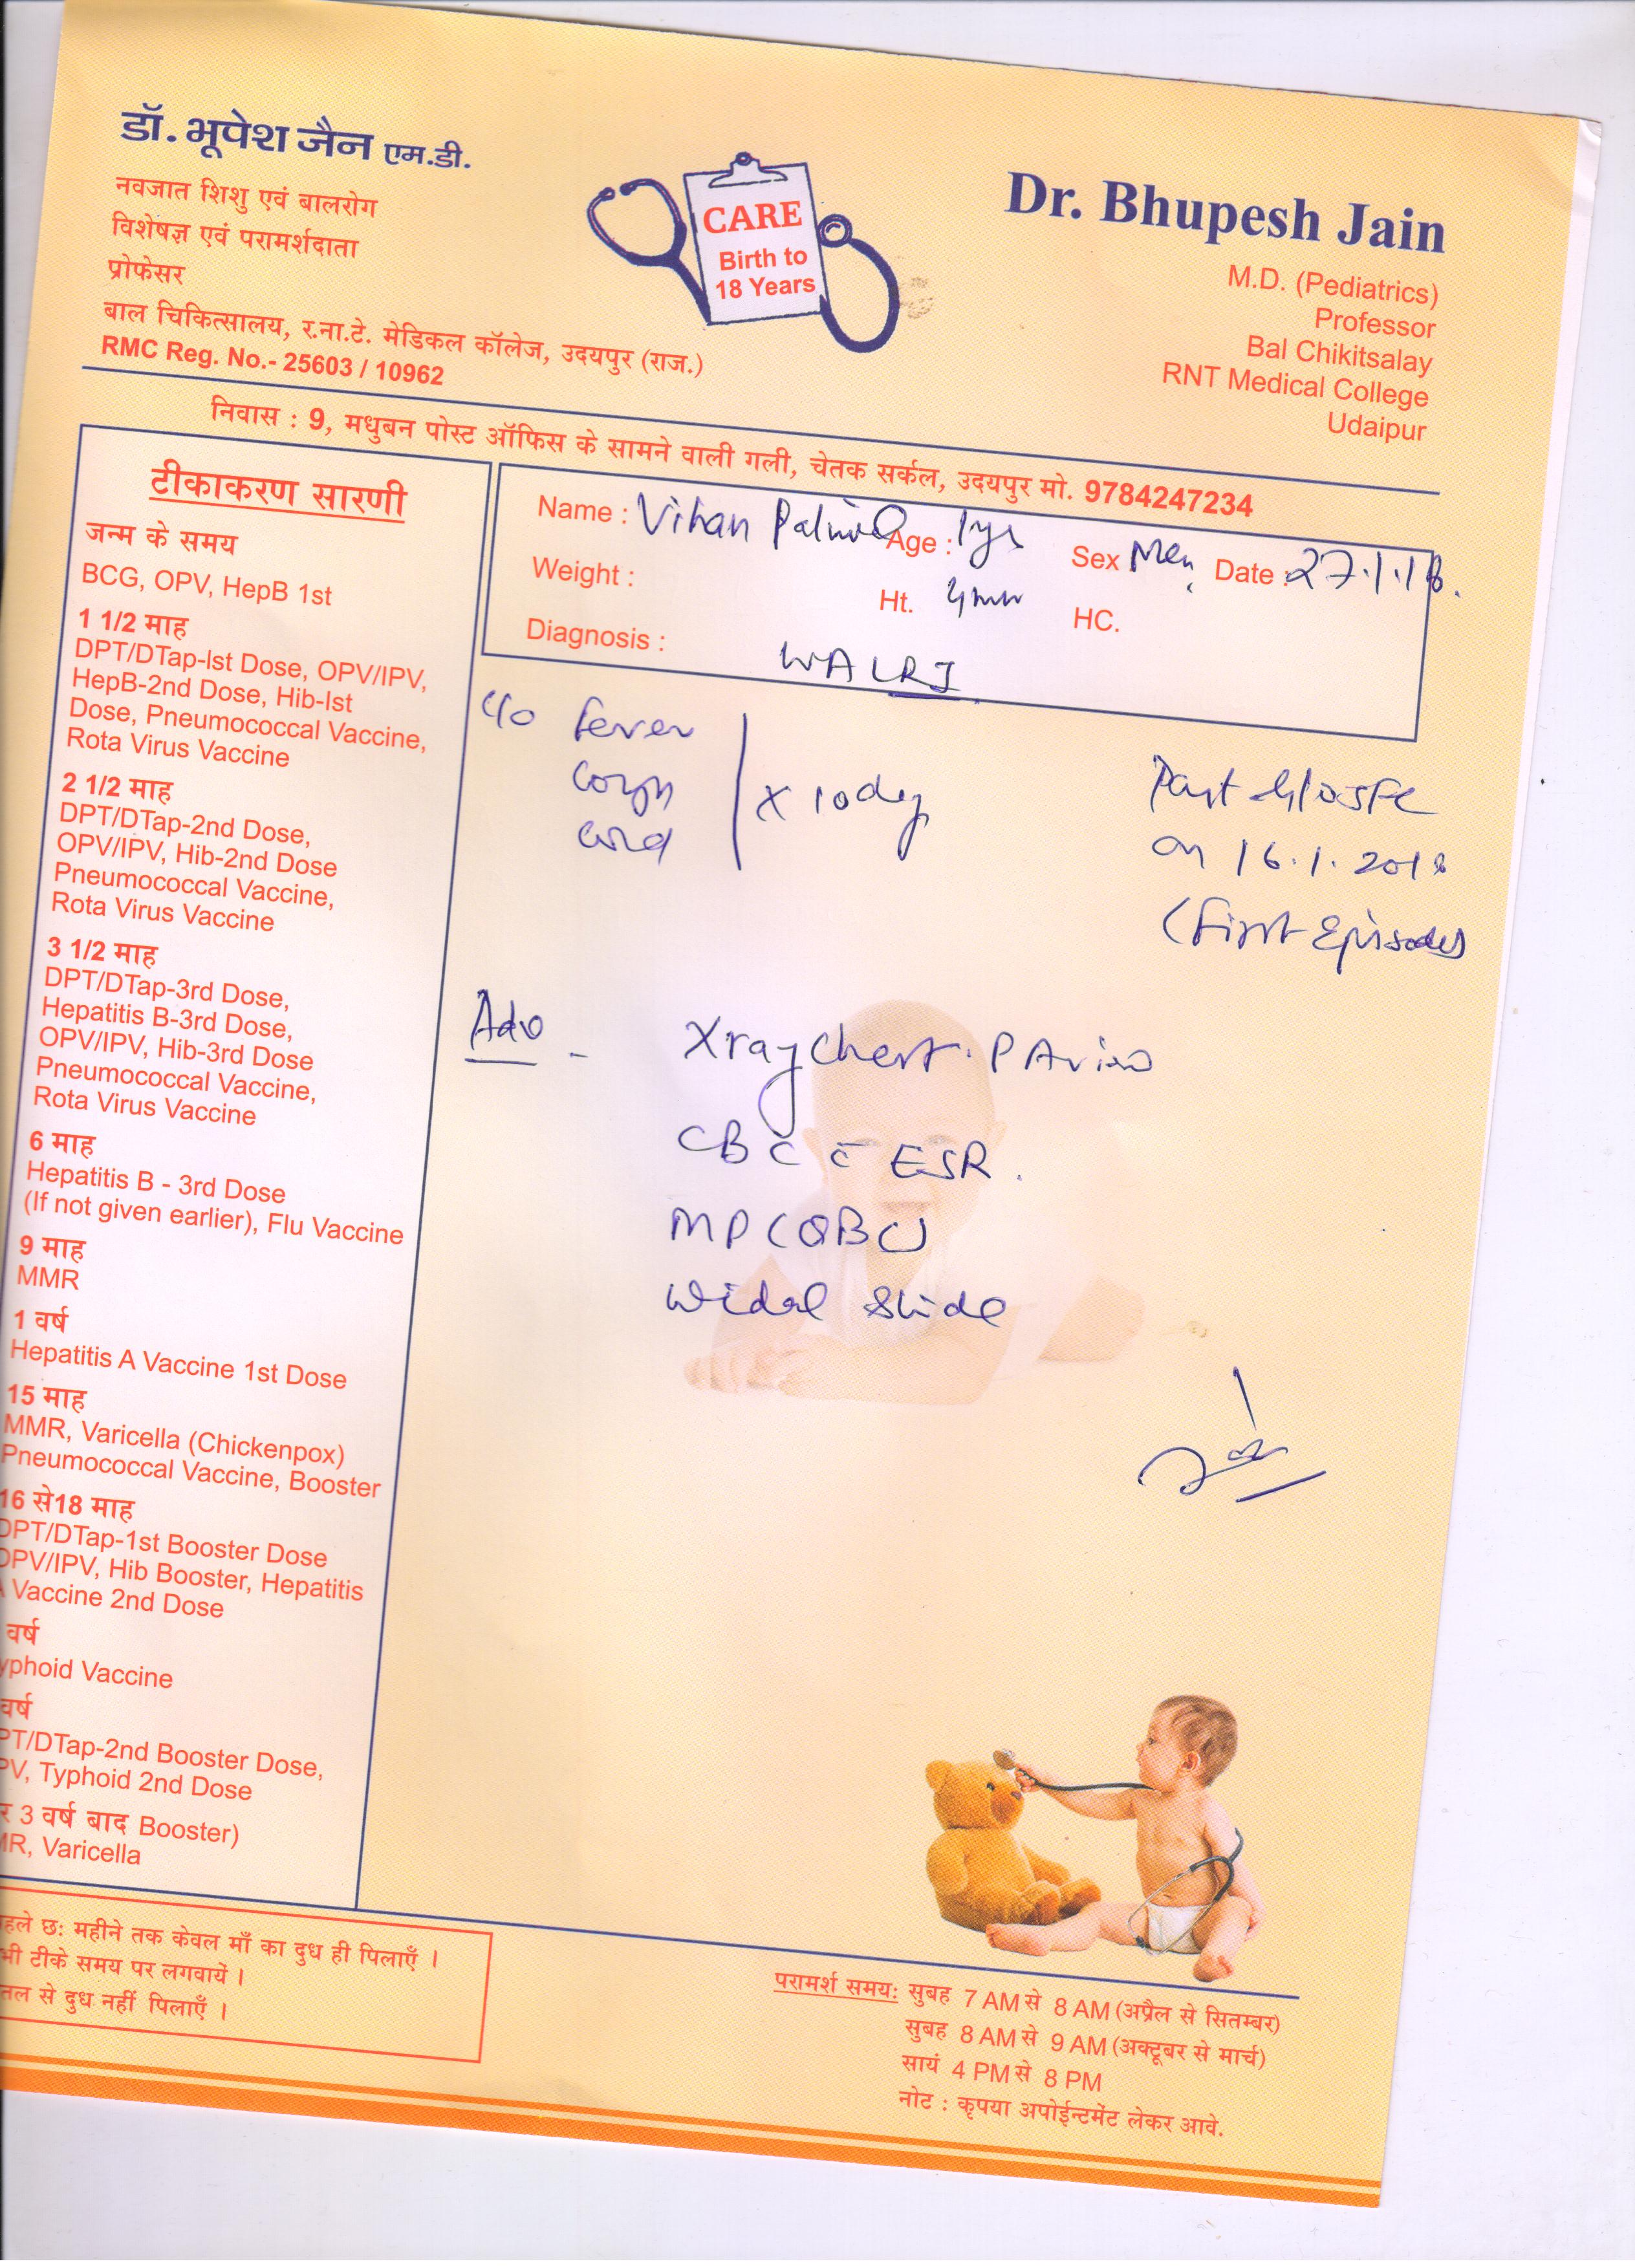 डॉ. भूपेश जैन एम.डी.
नवजात शिशु एवं बालरोग
विशेषज्ञ एवं परामर्शदाता
प्रोफेसर
बाल चिकित्सालय, र.ना.टे. मेडिकल कॉलेज, उदयपुर (राज.)
RMC Reg. No.- 25603 / 10962
CARE
Birth to
18 Years
Dr. Bhupesh Jain
M.D. (Pediatrics)
Professor
Bal Chikitsalay
RNT Medical College
Udaipur
निवास : 9, मधुबन पोस्ट ऑफिस के सामने वाली गली, चेतक सर्कल, उदयपुर मो. 9784247234
टीकाकरण सारणी
जन्म के समय
BCG, OPV, HepB 1st
1 1/2 माह
DPT/DTap-Ist Dose, OPV/IPV,
HepB-2nd Dose, Hib-Ist
Dose, Pneumococcal Vaccine,
Rota Virus Vaccine
2 1/2 माह
DPT/DTap-2nd Dose,
OPV/IPV, Hib-2nd Dose
Pneumococcal Vaccine,
Rota Virus Vaccine
3 1/2 माह
DPT/DTap-3rd Dose,
Hepatitis B-3rd Dose,
OPV/IPV, Hib-3rd Dose
Pneumococcal Vaccine,
Rota Virus Vaccine
6 माह
Hepatitis B - 3rd Dose
(If not given earlier), Flu Vaccine
9 माह
MMR
1 वर्ष
Hepatitis A Vaccine 1st Dose
15 माह
MMR, Varicella (Chickenpox)
Pneumococcal Vaccine, Booster
16 से18 माह
DPT/DTap-1st Booster Dose
OPV/IPV, Hib Booster, Hepatitis
A Vaccine 2nd Dose
वर्ष
yphoid Vaccine
वर्ष
PT/DTap-2nd Booster Dose,
PV, Typhoid 2nd Dose
र 3 वर्ष बाद Booster)
MR, Varicella
Name : Vihan Age : 1yr Sex Date : 27.1.18.
Weight : Ht. HC.
Diagnosis : WALRI
c/o fever
cough x 10day
cold
Past
on 16.1.2018
(First Episode)
Adv - Xray Chest. PA view
CBC c̄ ESR.
MP (QBC)
Widal Slide
हले छः महीने तक केवल माँ का दुध ही पिलाएँ ।
भी टीके समय पर लगवायें ।
तल से दुध नहीं पिलाएँ ।
परामर्श समय: सुबह 7 AM से 8 AM (अप्रैल से सितम्बर)
सुबह 8 AM से 9 AM (अक्टूबर से मार्च)
सायं 4 PM से 8 PM
नोट : कृपया अपोईन्टमेंट लेकर आवे.